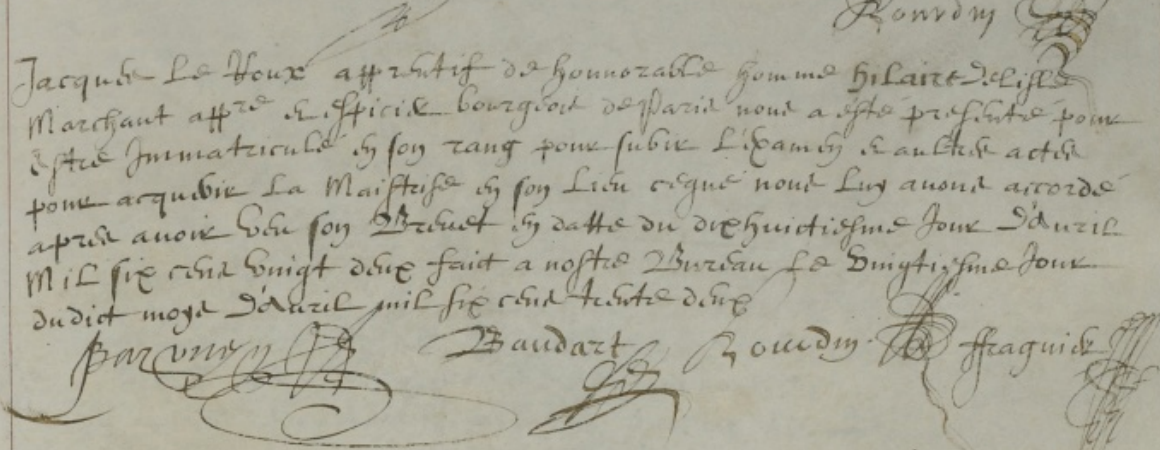 Rourdin
Jacques Le Roux apprentif de honnorable homme hilaire Delisle
Marchant app.re & espicier bourgeois de Paris nous a esté presenté pour
estre Immatriculé en son rang pour subir L'examen & aultres actes
pour acquerir La Maistrise en son Lieu ceque nous Luy avons accordé
apres avoir veu son Brevet en datte du dixhuictiesme Jour D'avril
Mil six cens vingt deux faict a nostre Bureau Le vingtiesme Jour
dudict moys D'avril mil six cens trente deux
Baudart Rourdin ffraguier